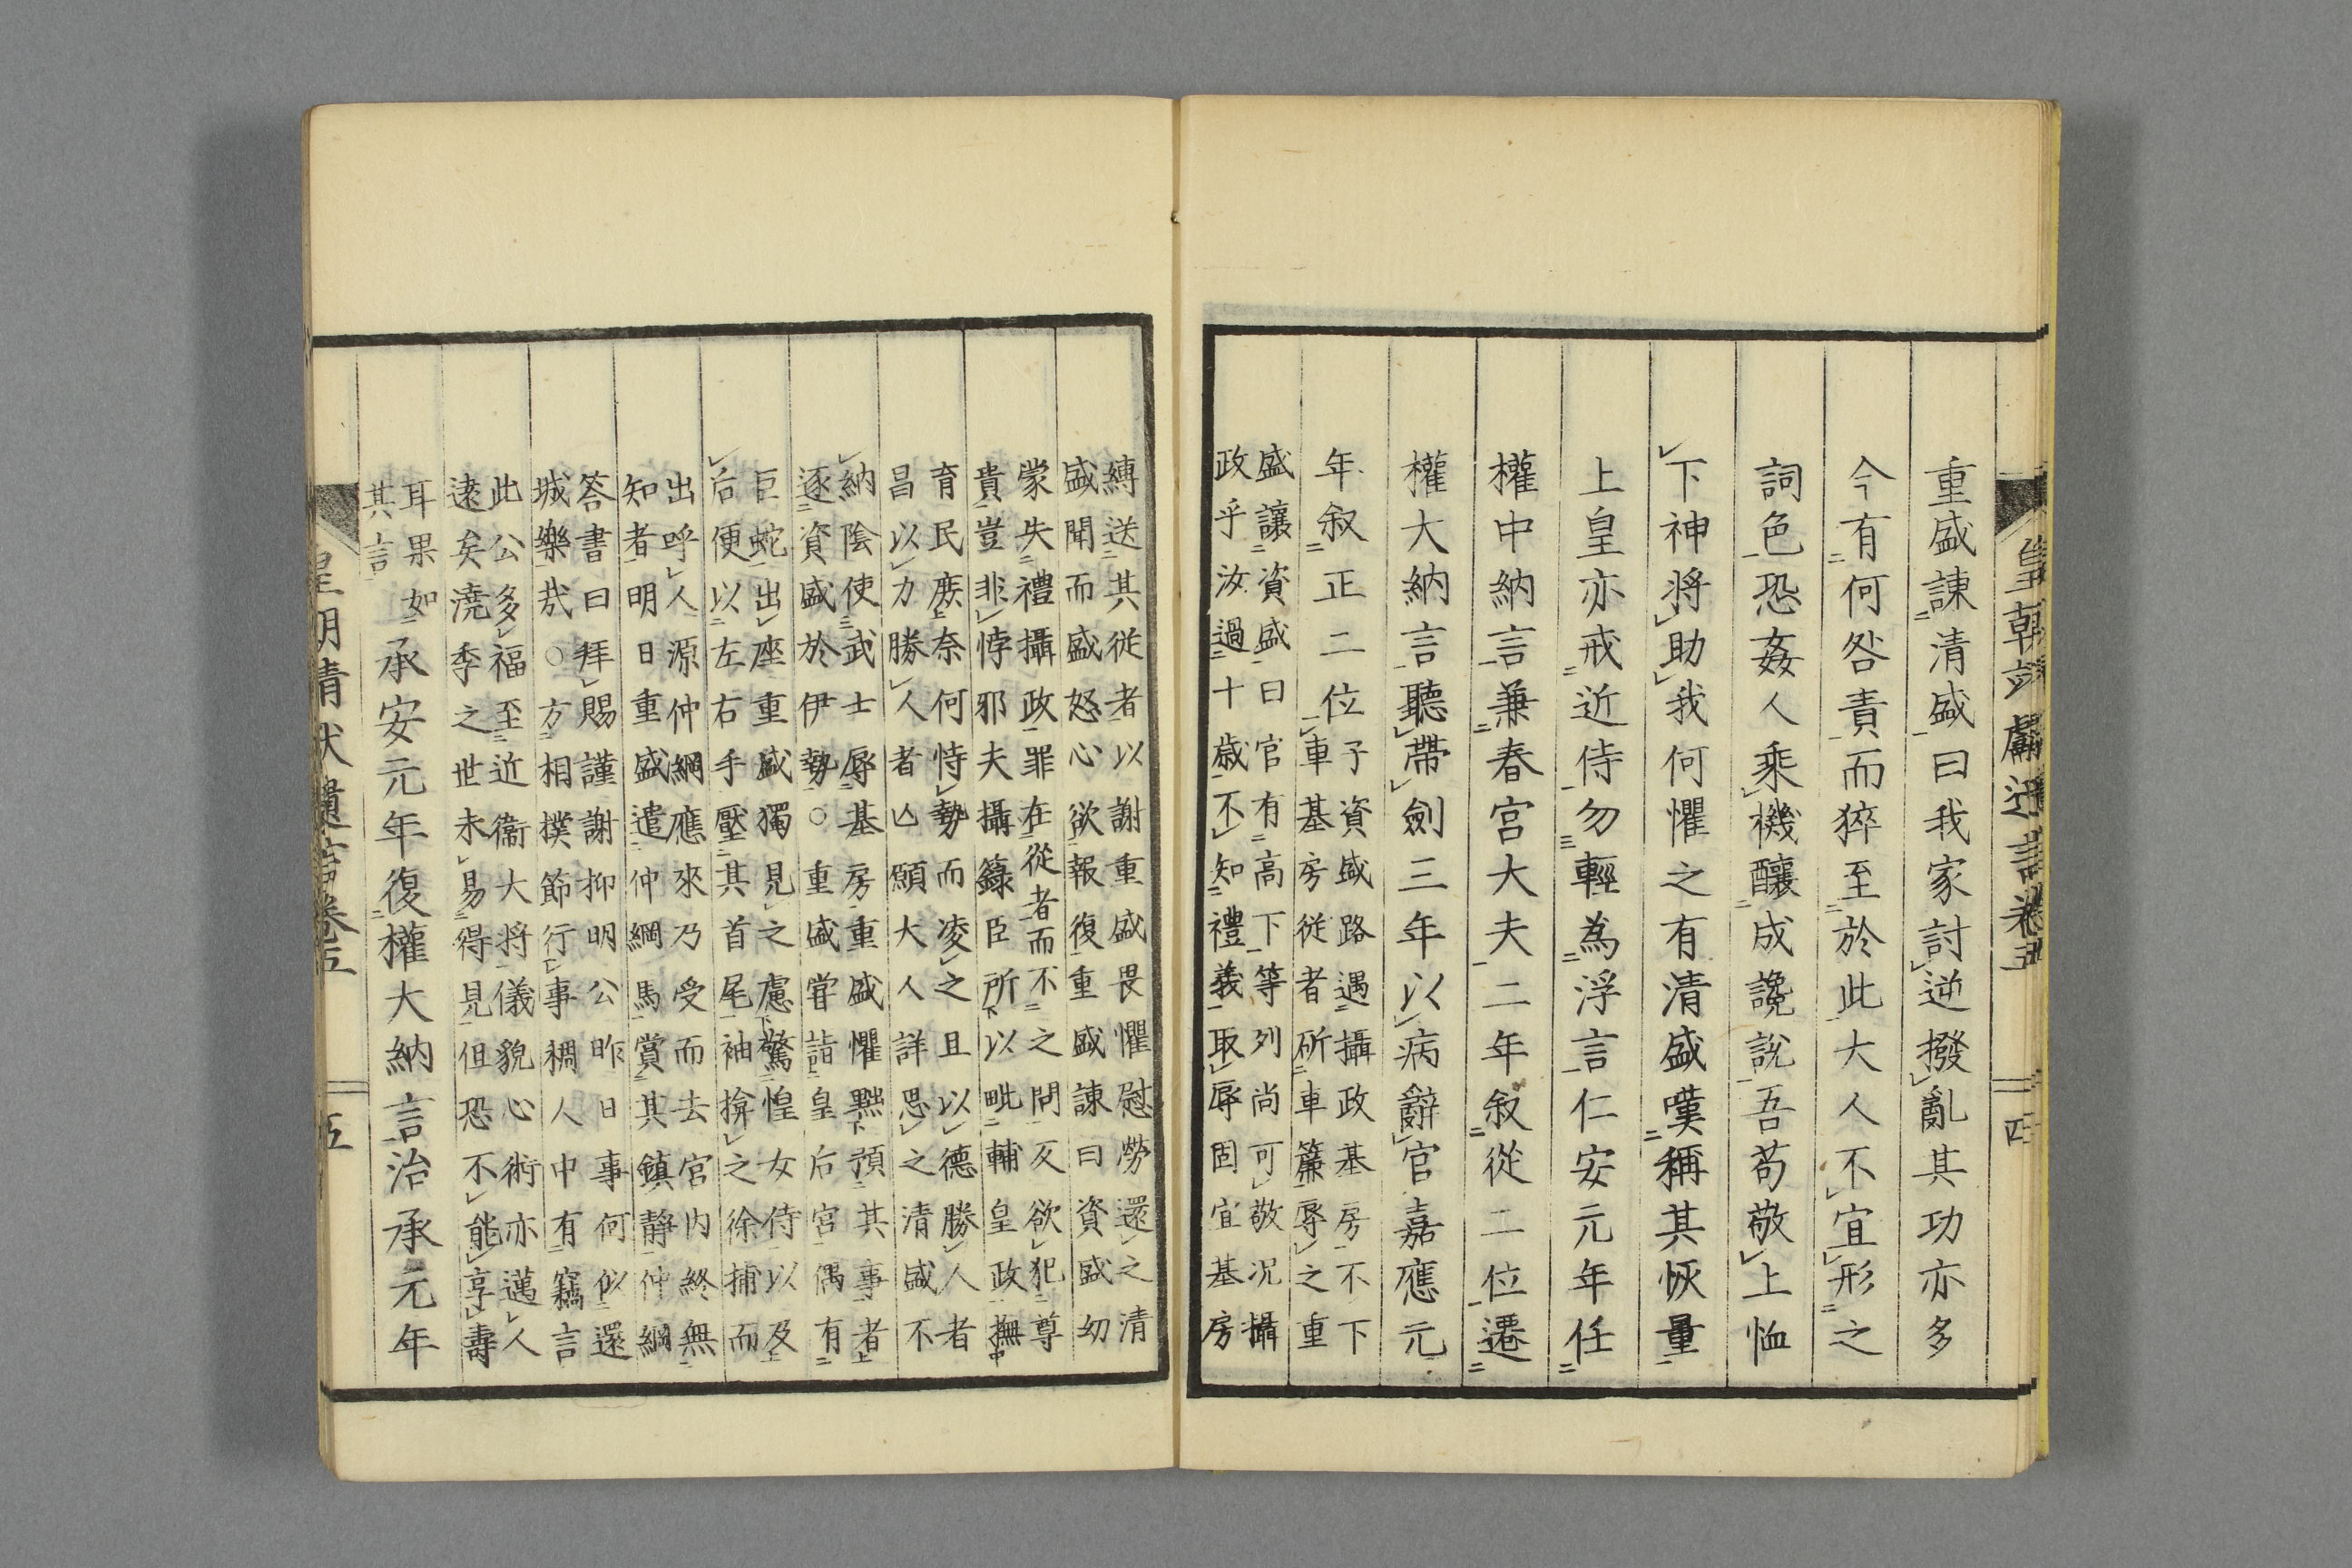 皇朝靖獻遺言卷五
四
重盛諌清盛曰我家討逆撥亂其功亦多
今有何咎責而猝至於此大人不宜形之
詞色恐姦人乘機釀成讒說吾苟敬上恤
下神将助我何懼之有清盛嘆稱其恢量
上皇亦戒近侍勿輕為浮言仁安元年任
權中納言兼春宮大夫二年叙從二位遷
權大納言聽帶劍三年以病辭官嘉應元
年叙正二位
子資盛路遇攝政基房不下
車基房從者斫車簾辱之重
盛讓資盛曰官有高下等列尚可敬況攝
政乎汝過十歲不知禮義取辱固宜基房
縛送其從者以謝重盛畏懼慰勞還之清
盛聞而盛怒心欲報復重盛諌曰資盛幼
蒙失禮攝政罪在從者而不之問反欲犯尊
貴豈非悖邪夫攝籙臣所以毗輔皇政撫
育民庶奈何恃勢而凌之且以德勝人者
昌以力勝人者凶願大人詳思之清盛不
納陰使武士辱基房重盛懼黜預其事者
逐資盛於伊勢○重盛嘗詣皇后宮偶有
巨蛇出座重盛獨見之慮驚惶女侍以及
后便以左右手壓其首尾袖揜之徐捕而
出呼人源仲綱應來乃受而去宮内終無
知者明日重盛遣仲綱馬賞其鎮静仲綱
答書曰拜賜謹謝抑明公昨日事何似還
城樂哉○方相撲節行事稠人中有竊言
此公多福至近衞大将儀貌心術亦邁人
遠矣澆季之世未易得見但恐不能享壽
耳果如
其言
承安元年復權大納言治承元年
皇朝靖獻遺言卷五
五